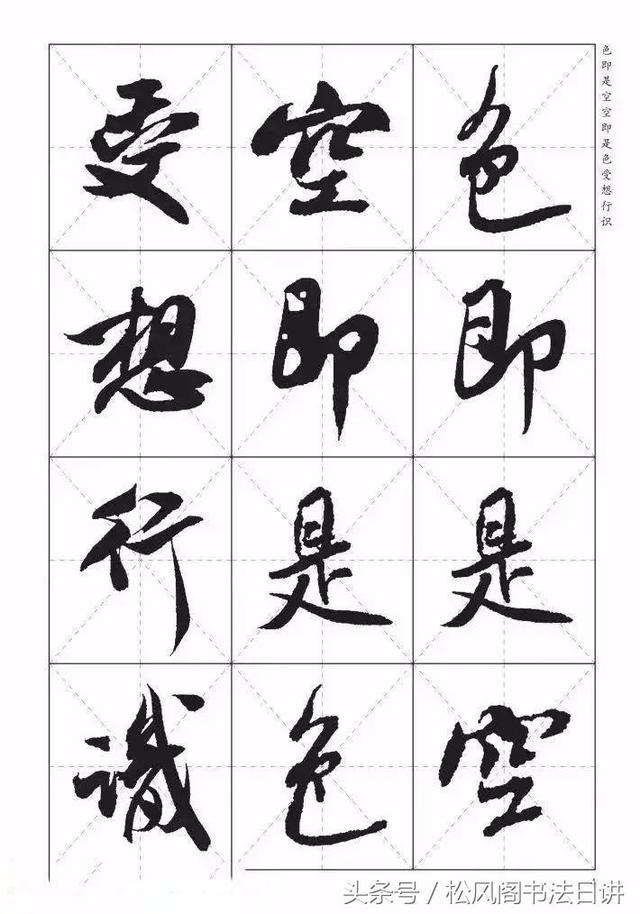 色即是空空即是色受想行识
色即是空
空即是色
受想行識
头条号/松风阁书法日讲